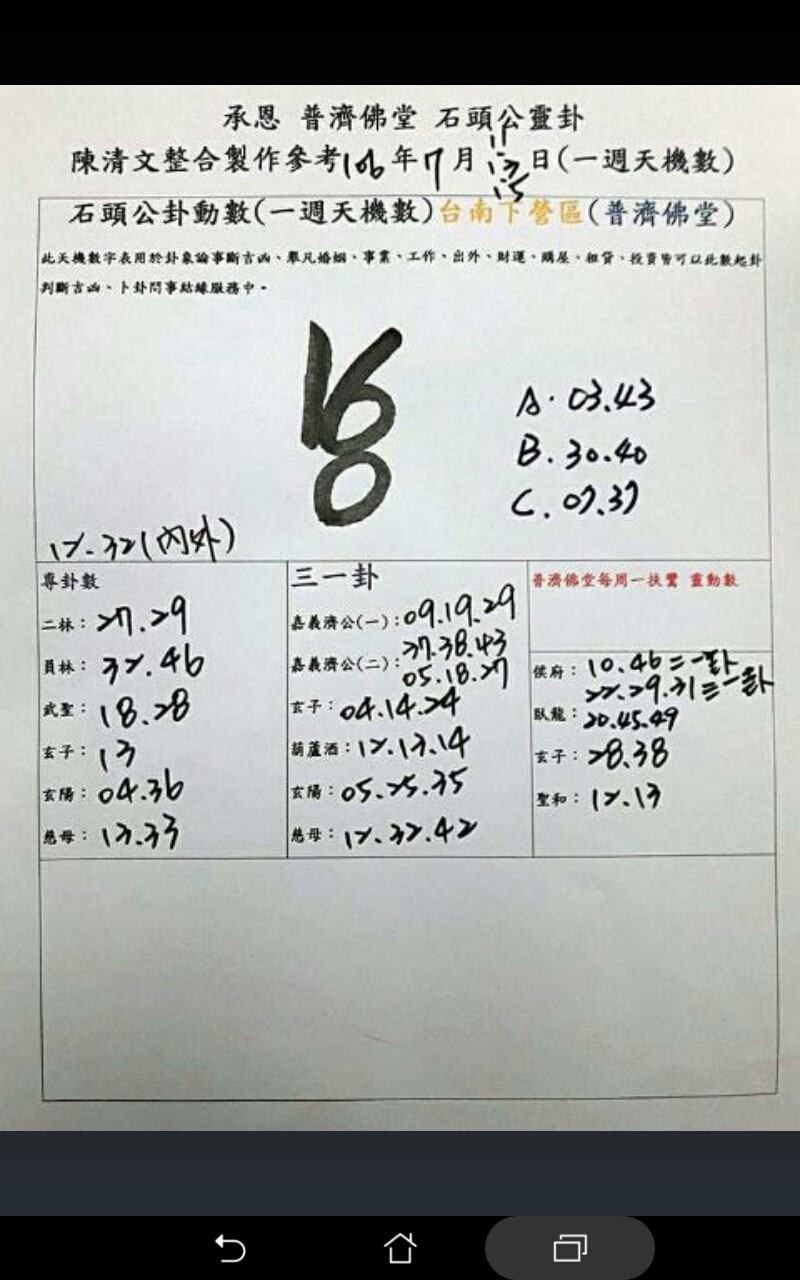 承恩 普濟佛堂 石頭公靈卦
11
陳清文整合製作參考106年7月13日(一週天機數)
15
石頭公卦動數(一週天機數)台南下營區(普濟佛堂)
此天機數字表用於卦象論事斷吉凶、舉凡婚姻、事業、工作、出外、財運、購屋、租貸、投資皆可以此數起卦
判斷吉凶、卜卦問事結緣服務中。
A. 03.43
B. 30.40
C. 07.37
12.32(內外)
專卦數
二林: 27.29
員林: 32.46
武聖: 18.28
玄子: 13
玄陽: 04.36
慈母: 13.33
三一卦
嘉義濟公(一): 09.19.29
37.38.43
嘉義濟公(二): 05.18.27
玄子: 04.14.24
葫蘆酒: 12.13.14
玄陽: 05.25.35
慈母: 12.32.42
普濟佛堂每周一扶鸞 靈動數
侯府: 10.46=一卦
22.29.31三一卦
臥龍: 20.45.49
玄子: 28.38
聖和: 12.13